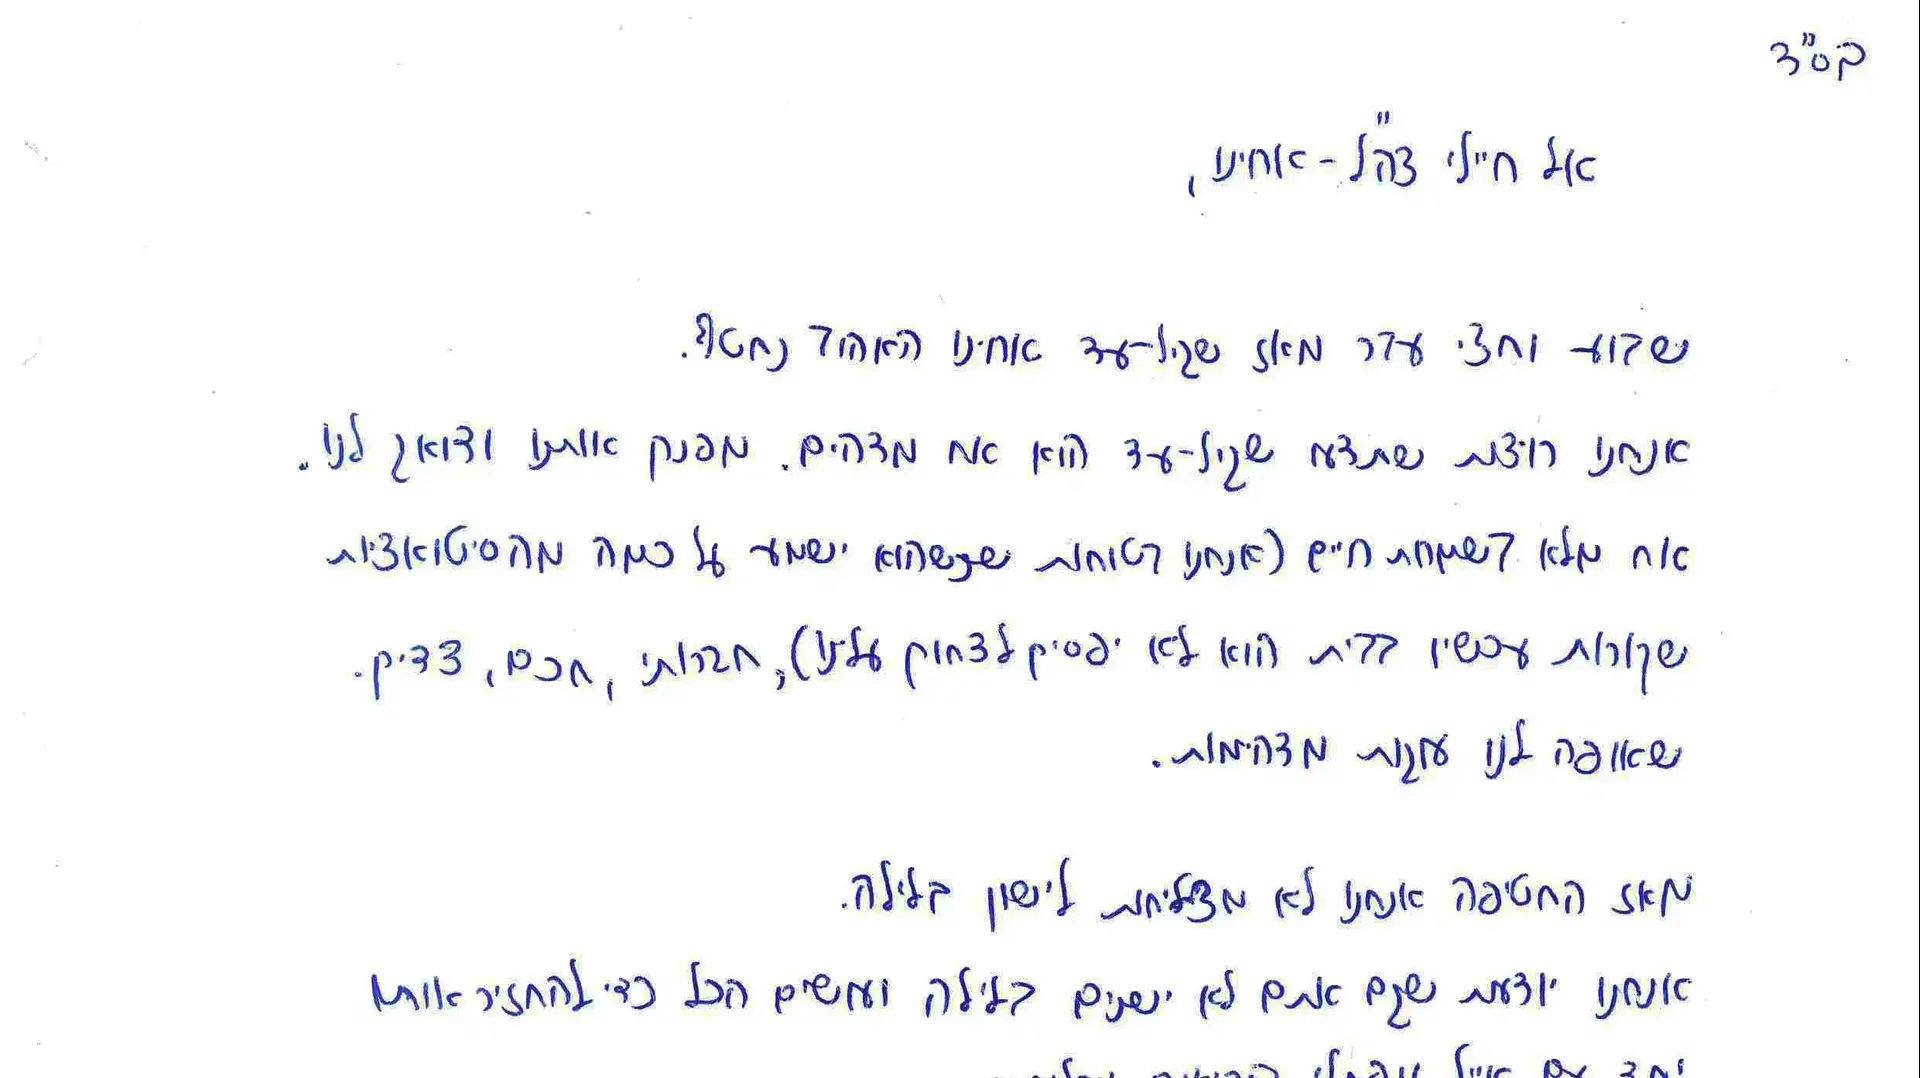 בס"ד
אל חיילי צה"ל - אחינו,
שבוע וחצי עבר מאז שגיל-עד אחינו האהוב נחטף.
אנחנו רוצות שתדעו שגיל-עד הוא אח מדהים. מפנק אותנו ודואג לנו.
אח מלא בשמחת חיים (אנחנו בטוחות שכשהוא ישמע על כמה מהסיטואציות
שקורות עכשיו בבית הוא לא יפסיק לצחוק עלינו), חברותי, חכם, צדיק.
שאופה לנו עוגות מדהימות.
מאז החטיפה אנחנו לא מצליחות לישון בלילה.
אנחנו יודעות שגם אתם לא ישנים בלילה ועושים הכל כדי להחזיר אותו
יחד עם אייל ונפתלי